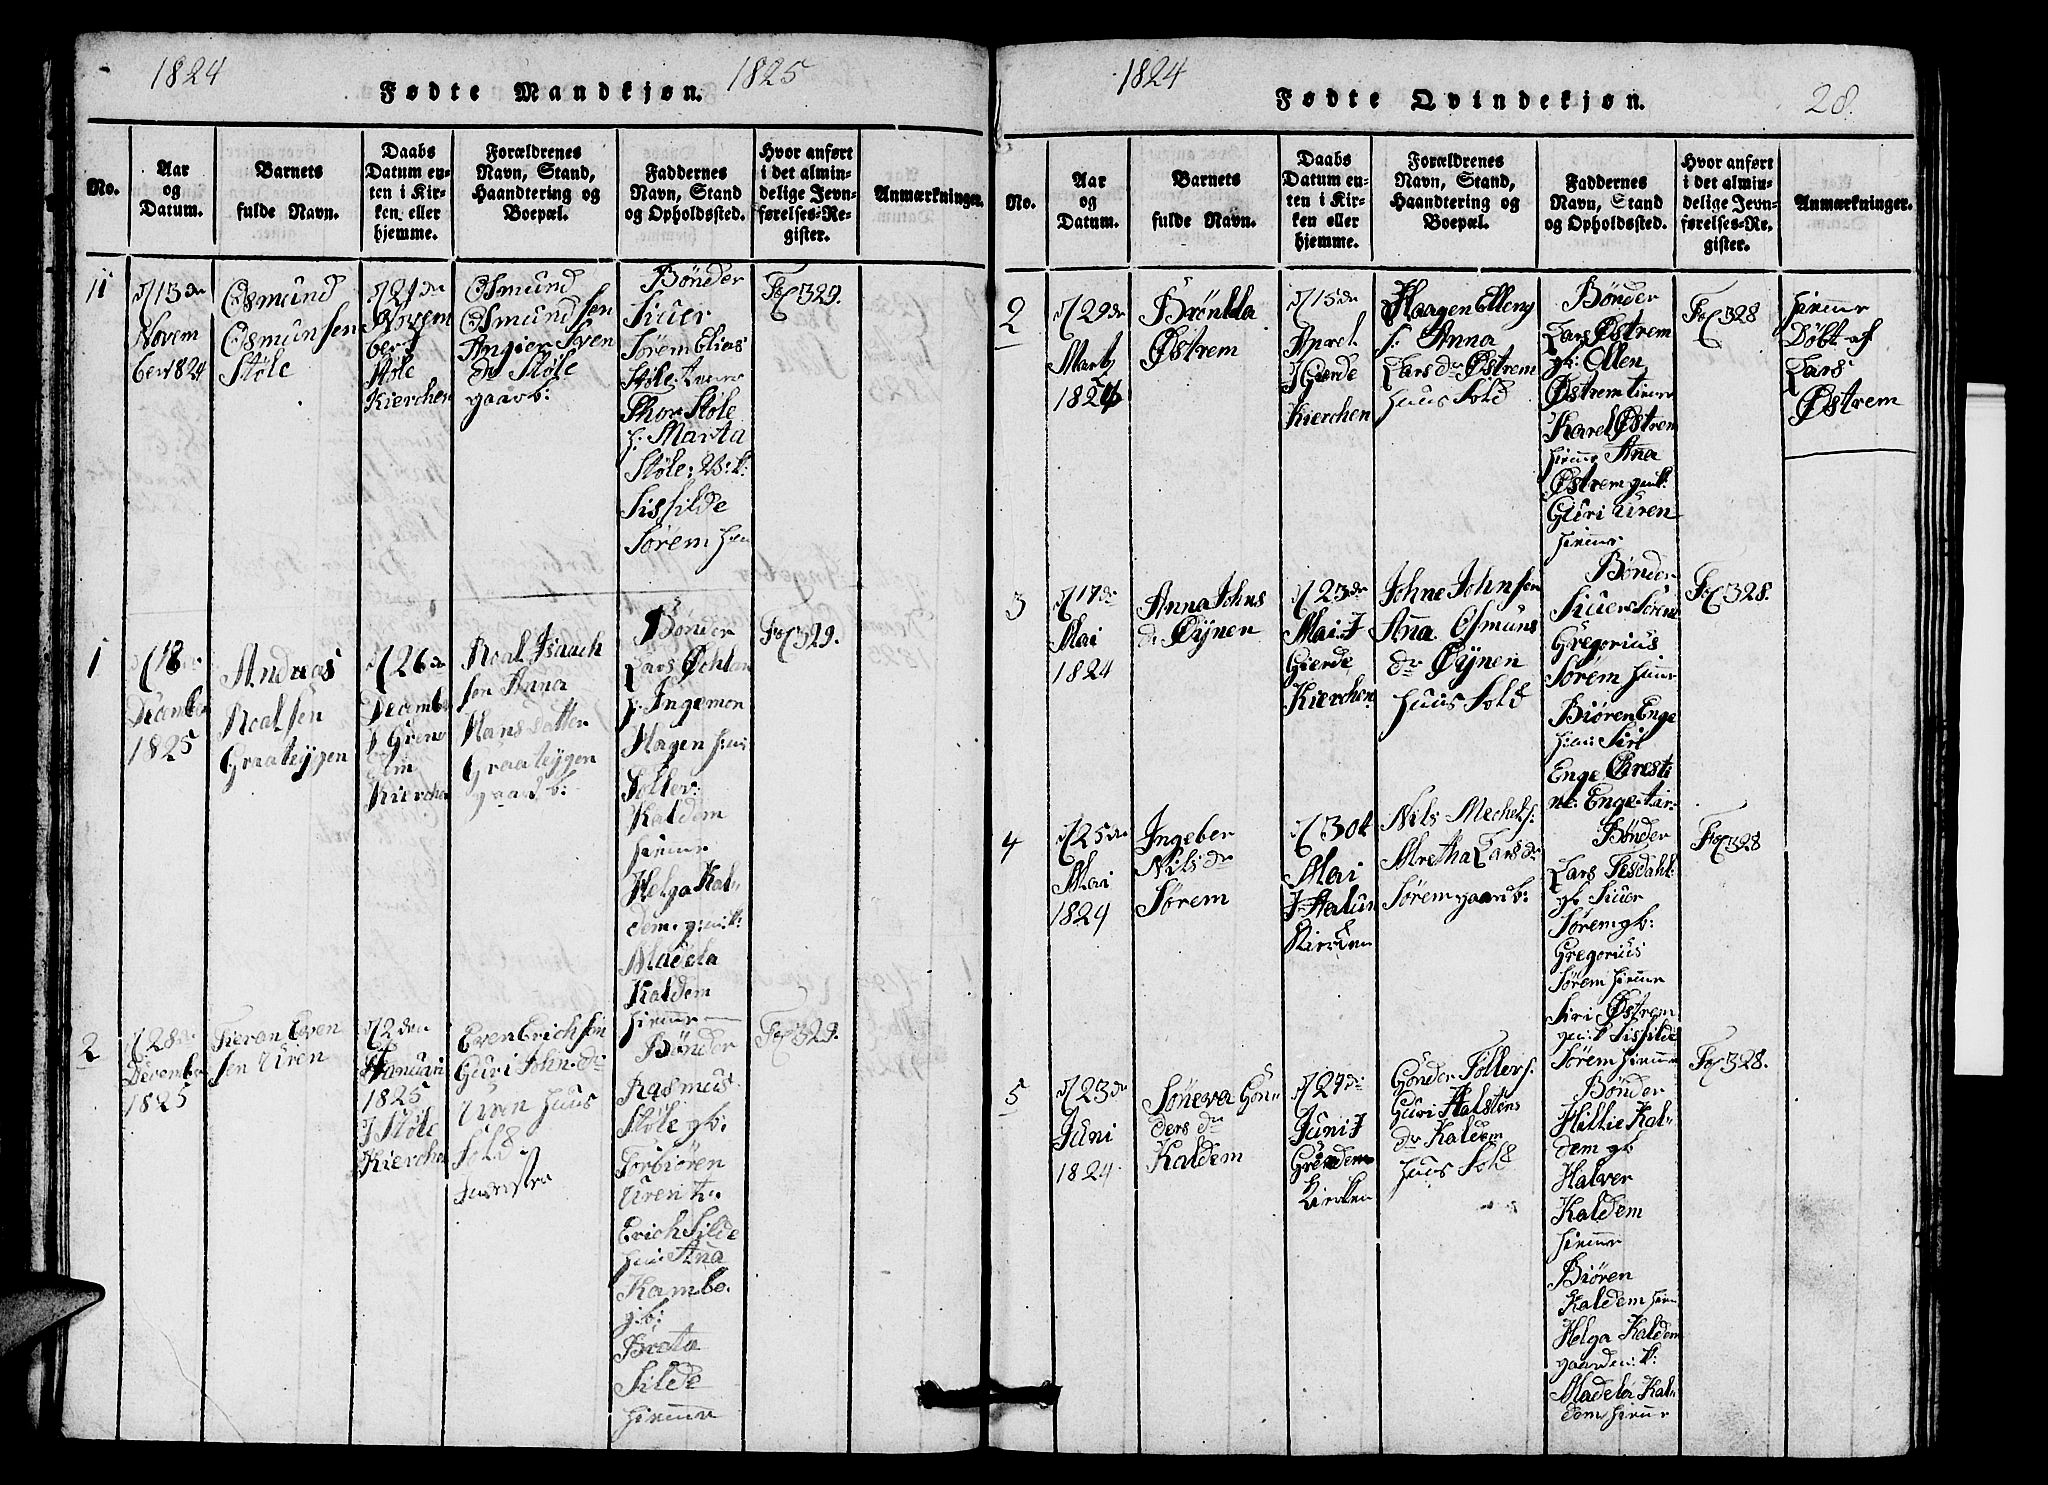 1824
1825
Fødte Mandkjøn.
No.
Aar
og
Datum.
Barnets
fulde Navn.
Daabs
Datum en-
ten i Kir-
ken eller
hjemme.
Forældrenes
Navn, Stand,
Haandtering og
Boepæl.
Faddernes
Navn, Stand
og Opholdssted.
Hvor anført
i det almin-
delige Jevn-
førelses-Re-
gister.
Anmærkninger.
11
13de
Novem
ber 1824
Osmund
Osmunsen
Støle
21de
Novem
ber
Støle
Kierchen
Osmund
Osmundsen
Sven
dr Støle
gaarb:
Bønder
Siuer
Sørem Elias
Støle
Thor Støle
h: Marta
Støle
Sissilde
Sørem
Fol 329.
1
18
Decembe
1825
Andreas
Roalsen
Graateygen
26de
Decembe
I Grind
dem
Kierche
Roal Isaach
sen Anna
Hansdatter
Graateygen
gaardb:
Bønder
Lars
Ingemon
Hagen
Toller
Kaldem
Helga Kal-
dem
Madela
Kaldem
Fol 329.
2
28de
Decembe
1825
Even
sen Uren
2den
Januari
1825
I Støle
Kierche
Even Erichsen
Guri John dr
Uren Huus
fold
Bønder
Rasmus
Støle gb:
Torbiören
Uren
Erich Silde
Ana
Kambe
gb:
Brota
Silde
Fol 329.
1824
Fødte Qvindekjøn.
28.
No.
Aar
og
Datum.
Barnets
fulde Navn.
Daabs
Datum en-
ten i Kir-
ken eller
hjemme.
Forældrenes
Navn, Stand,
Haandtering og
Boepæl.
Faddernes
Navn, Stand
og Opholdssted.
Hvor anført
i det almin-
delige Jevn-
førelses-Re-
gister.
Anmærkninger.
2
29de
Marty
1824
Østrem
15de
Aprel
I Gierde
Kierchen
Haagen Elleng
s. Anna
Lars dr Østrem
Huus Fold
Bønder
Lars Østrem
gb: Ellen
Østrem
Karel Østrem
Ana
Østrem
Guri Uren
Fol 328
Døbt af
Lars
Østrem
3
17de
Mai
1824
Anna Johns
dr Øynen
23de
Mai I
Gierde
Kierchen
Johne Johnsen
Ana Osmuns
dr Øynen
Huus Fold
Bønder
Siuer Sørem
Gregorius
Sørem
Biören Enge
Siri
Enge Cresti
ne Enge
Fol 328.
4
25de
Mai
1824
Ingeber
Nils dr
Sørem
30t
Mai
I
Kirken
Nils Mechels:
Mretha Lars dr
Sørem gaardb:
Bønder
Lars Tesdahl
gb Siuer
Sørem gb:
Gregorius
Sørem
Siri Østrem
Sissilde
Sørem
Fol 328
5
23de
Juni
1824.
Söneva Gön-
ders dr
Kaldem
29de
Juni I
Grindem
Kirken
Gönder Tollers:
Guri Halstens
dr Kaldem
Huus Fold
Bønder
Hillie Kal-
dem gb
Halver
Kaldem
Biören
Kaldem
Helga Kaldem
Madela Kal-
dem
Fol 328.